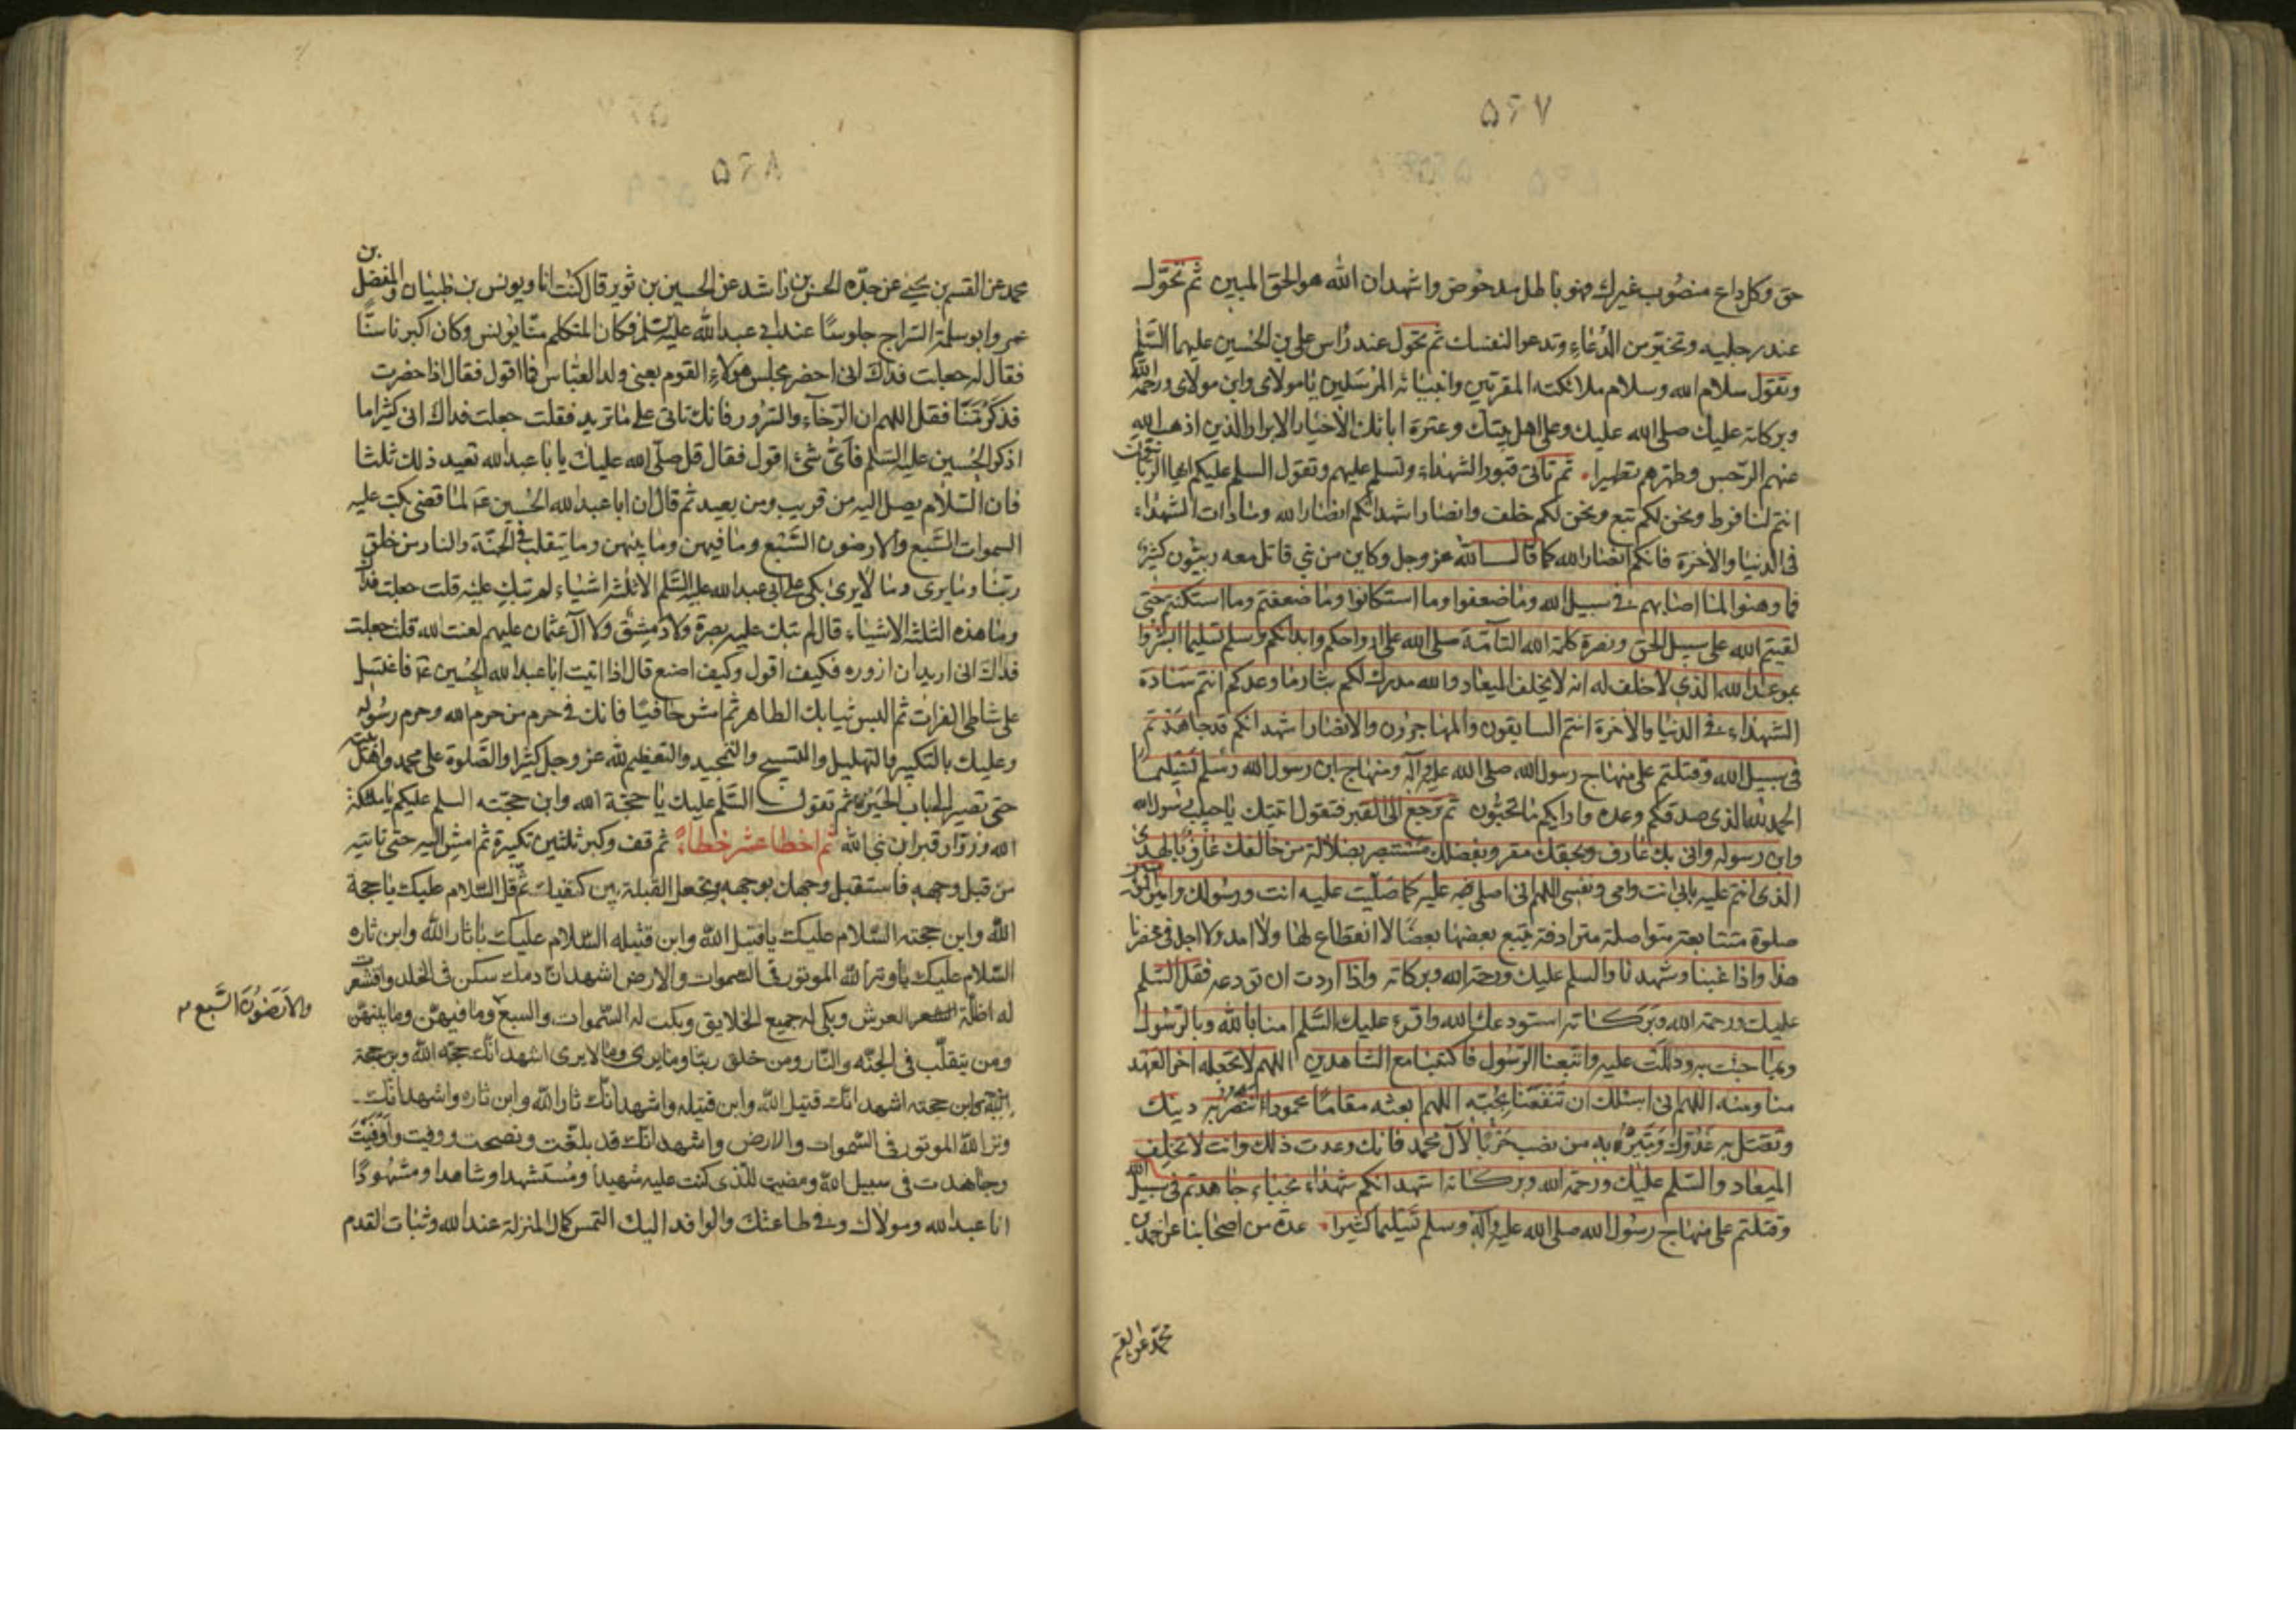 ۵۶۷
حق وكل داع منصوب غيرك فهو باطل مدحوض واشهد ان الله هو الحق المبين ثم تحول
عند رجليه وتخير من الدعاء وتدعو لنفسك ثم تحول عند راس على بن الحسين عليهما السلم
وتقول سلام الله وسلام ملائكته المقربين وانبيائه المرسلين يا مولاى وابن مولاى ورحمة الله
وبركاته عليك صلى الله عليك وعلى اهل بيتك وعترة ابائك الاخيار الابرار الذين اذهب الله
عنهم الرجس وطهرهم تطهيرا ثم تاتى قبور الشهداء وتسلم عليهم وتقول السلم عليكم ايها الربانيون
انتم لنا فرط ونحن لكم تبع ونحن لكم خلف وانصار اشهد انكم انصار الله وسادات الشهداء
فى الدنيا والاخرة فانكم انصار الله كما قال الله عز وجل وكاين من نبي قاتل معه ربيون كثير
فما وهنوا لما اصابهم فى سبيل الله وما ضعفوا وما استكانوا وما ضعفتم وما استكنتم حتى
لقيتم الله على سبيل الحق ونصرة كلمة الله التامة صلى الله على ارواحكم وابدانكم وسلم تسليما ابشروا
بموعد الله الذى لا خلف له انه لا يخلف الميعاد والله مدرك لكم بثار ما وعدكم انتم سادة
الشهداء فى الدنيا والاخرة انتم السابقون والمهاجرون والانصار اشهد انكم قد جاهدتم
فى سبيل الله وقتلتم على منهاج رسول الله صلى الله عليه وآله ومنهاج ابن رسول الله وسلم تسليما
الحمد لله الذى صدقكم وعده واراكم ما تحبون ثم ترجع الى القبر فتقول اتيتك يا حبيب رسول الله
وابن رسوله وانى بك عارف وبحقك مقر وبفضلك مستبصر بضلالة من خالفك عارف بالهدى
الذى انتم عليه بابى انت وامى ونفسى اللهم انى اصلى عليه كما صليت عليه انت ورسولك وامير المؤمنين
صلوة متتابعة متواصلة مترادفة يتبع بعضها بعضا لا انقطاع لها ولا امد ولا اجل فى محضرنا
هذا واذا غبنا وشهدنا والسلم عليك ورحمة الله وبركاته واذا اردت ان تودعه فقل السلم
عليك ورحمة الله وبركاته استودعك الله واقرء عليك السلم امنا بالله وبالرسول
وبما جئت به ودللت عليه واتبعنا الرسول فاكتبنا مع الشاهدين اللهم لا تجعله اخر العهد
منا ومنه اللهم انى اسئلك ان تنفعنا بحبه اللهم ابعثه مقاما محمودا تنصر به دينك
وتقتل به عدوك وتبير به من نصب حربا لآل محمد فانك وعدت ذلك وانت لا تخلف
الميعاد والسلم عليك ورحمة الله وبركاته اشهد انكم شهداء نجباء جاهدتم فى سبيل الله
وقتلتم على منهاج رسول الله صلى الله عليه وآله وسلم تسليما كثيرا عدة من اصحابنا عن احمد بن
محمد عن القسم
۵۶۸
محمد عن القسم بن يحيى عن جده الحسن بن راشد عن الحسين بن ثوير قال كنت انا ويونس بن ظبيان والمفضل بن
عمر وابو سلمة السراج جلوسا عند ابى عبد الله عليه السلم فكان المتكلم منا يونس وكان اكبرنا سنا
فقال له جعلت فداك انى احضر مجلس هولاء القوم يعنى ولد العباس فما اقول فقال اذا حضرت
فذكرتنا فقل اللهم ارنا الرخاء والسرور فانك تاتى على ما تريد فقلت جعلت فداك انى كثيرا ما
اذكر الحسين عليه السلم فأى شئ اقول فقال قل صلى الله عليك يا با عبد الله تعيد ذلك ثلثا
فان السلام يصل اليه من قريب ومن بعيد ثم قال ان ابا عبد الله الحسين ع لما قضى بكت عليه
السموات السبع والارضون السبع وما فيهن وما بينهن وما يتقلب فى الجنة والنار من خلق
ربنا وما يرى وما لا يرى بكى على ابى عبد الله عليه السلم الا ثلثة اشياء لم تبك عليه قلت جعلت فداك
وما هذه الثلثة الاشياء قال لم تبك عليه بصرة ولا دمشق ولا آل عثمان عليهم لعنت الله قلت جعلت
فداك انى اريد ان ازوره فكيف اقول وكيف اصنع قال اذا اتيت ابا عبد الله الحسين ع فاغتسل
على شاطى الفرات ثم البس ثيابك الطاهرة ثم امش حافيا فانك فى حرم من حرم الله وحرم رسوله
وعليك بالتكبير والتهليل والتسبيح والتمجيد والتعظيم لله عز وجل كثيرا والصلوة على محمد واهل بيته
حتى تصير الى باب الحير ثم تقول السلم عليك يا حجة الله وابن حجته السلم عليكم يا ملئكة
الله وزوار قبر ابن نبى الله ثم اخط عشر خطا ثم قف وكبر ثلثين تكبيرة ثم امش اليه حتى تاتيه
من قبل وجهه فاستقبل وجهك بوجهه وتجعل القبلة بين كتفيك ثم قل السلام عليك يا حجة
الله وابن حجته السلام عليك يا قتيل الله وابن قتيله السلام عليك يا ثار الله وابن ثاره
السلام عليك يا وتر الله الموتور فى السموات والارض اشهد ان دمك سكن فى الخلد واقشعرت
له اظلة العرش وبكى له جميع الخلايق وبكت له السموات والسبع وما فيهن وما بينهن
والارضون السبع
ومن يتقلب فى الجنة والنار ومن خلق ربنا وما يرى وما لا يرى اشهد انك حجة الله وبن حجته
وابن حجته اشهد انك قتيل الله وابن قتيله واشهد انك ثار الله وابن ثاره واشهد انك
وتر الله الموتور فى السموات والارض واشهد انك قد بلغت ونصحت ووفيت واوفيت
وجاهدت فى سبيل الله ومضيت للذى كنت عليه شهيدا ومستشهدا وشاهدا ومشهودا
انا عبد الله ومولاك وفى طاعتك والوافد اليك التمس كمال المنزلة عند الله وثبات القدم